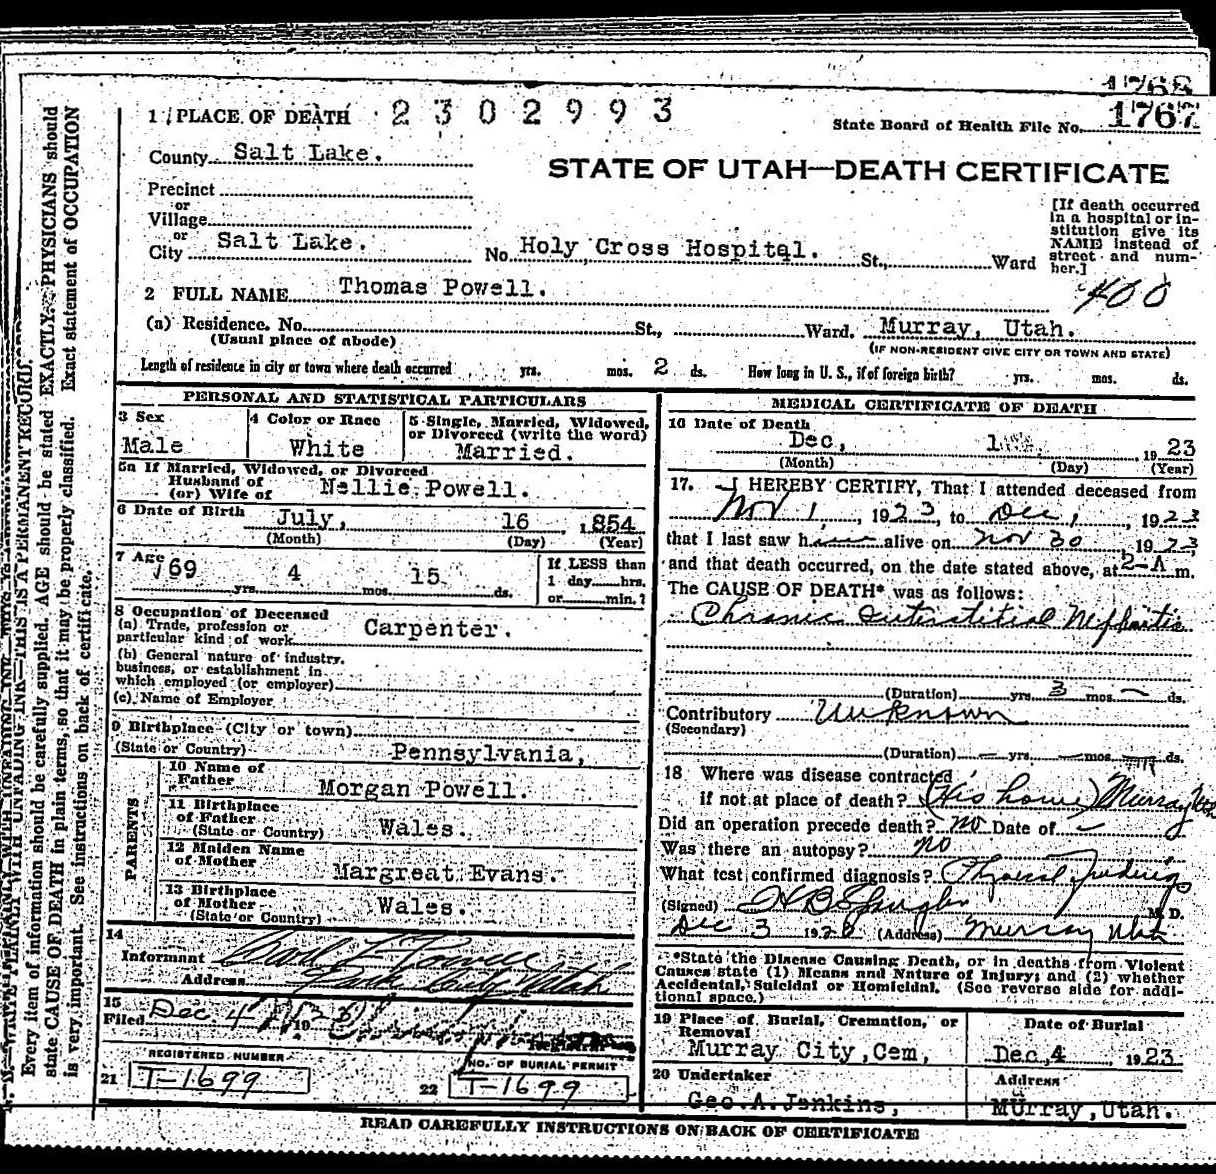 1768
1 PLACE OF DEATH 2302993
State Board of Health File No. 1767
County Salt Lake.
STATE OF UTAH—DEATH CERTIFICATE
Precinct
or
Village
or
City Salt Lake. No. Holy Cross Hospital. St., Ward
[If death occurred
in a hospital or in-
stitution give its
NAME instead of
street and num-
ber.]
400
2 FULL NAME Thomas Powell.
(a) Residence. No. St., Ward. Murray, Utah.
(Usual place of abode) (IF NON-RESIDENT GIVE CITY OR TOWN AND STATE)
Length of residence in city or town where death occurred yrs. mos. 2 ds. How long in U. S., if of foreign birth? yrs. mos. ds.
PERSONAL AND STATISTICAL PARTICULARS
3 Sex
Male
4 Color or Race
White
5 Single, Married, Widowed,
or Divorced (write the word)
Married.
5a If Married, Widowed, or Divorced
Husband of
(or) Wife of Nellie Powell.
6 Date of Birth July, 16 , 1854
(Month) (Day) (Year)
7 Age 69 yrs. 4 mos. 15 ds.
If LESS than
1 day hrs.
or min.?
8 Occupation of Deceased
(a) Trade, profession or
particular kind of work Carpenter.
(b) General nature of industry,
business, or establishment in
which employed (or employer)
(c) Name of Employer
9 Birthplace (City or town)
(State or Country) Pennsylvania,
PARENTS
10 Name of
Father Morgan Powell.
11 Birthplace
of Father
(State or Country) Wales.
12 Maiden Name
of Mother Margreat Evans.
13 Birthplace
of Mother
(State or Country) Wales.
14
Informant Powell
Address Park City Utah
15
Filed Dec 4 1923
Registrar
REGISTERED NUMBER
21 T-1699
NO. OF BURIAL PERMIT
22 T-1699
MEDICAL CERTIFICATE OF DEATH
16 Date of Death
Dec, 1 , 1923
(Month) (Day) (Year)
17. I HEREBY CERTIFY, That I attended deceased from
Nov 1, , 1923, to Dec 1 , 1923
that I last saw h alive on Nov 30 , 1923,
and that death occurred, on the date stated above, at 2-A m.
The CAUSE OF DEATH* was as follows:
Chronic interstitial Nephritis
(Duration) yrs. 3 mos. — ds.
Contributory Unknown
(Secondary)
(Duration) — yrs. — mos. ds.
18 Where was disease contracted
if not at place of death? (His home) Murray Utah
Did an operation precede death? no Date of —
Was there an autopsy? no
What test confirmed diagnosis? Physical findings
(Signed) M. D.
Dec 3 19 (Address) Murray Utah
*State the Disease Causing Death, or in deaths from Violent
Causes state (1) Means and Nature of Injury; and (2) whether
Accidental, Suicidal or Homicidal. (See reverse side for addi-
tional space.)
19 Place of Burial, Cremation, or
Removal
Murray City, Cem,
Date of Burial
Dec, 4 1923
20 Undertaker
Geo. A. Jenkins,
Address
Murray, Utah.
READ CAREFULLY INSTRUCTIONS ON BACK OF CERTIFICATE
N. B.—WRITE PLAINLY WITH UNFADING INK—THIS IS A PERMANENT RECORD.
Every item of information should be carefully supplied. AGE should be stated EXACTLY. PHYSICIANS should
state CAUSE OF DEATH in plain terms, so that it may be properly classified. Exact statement of OCCUPATION
is very important. See instructions on back of certificate.